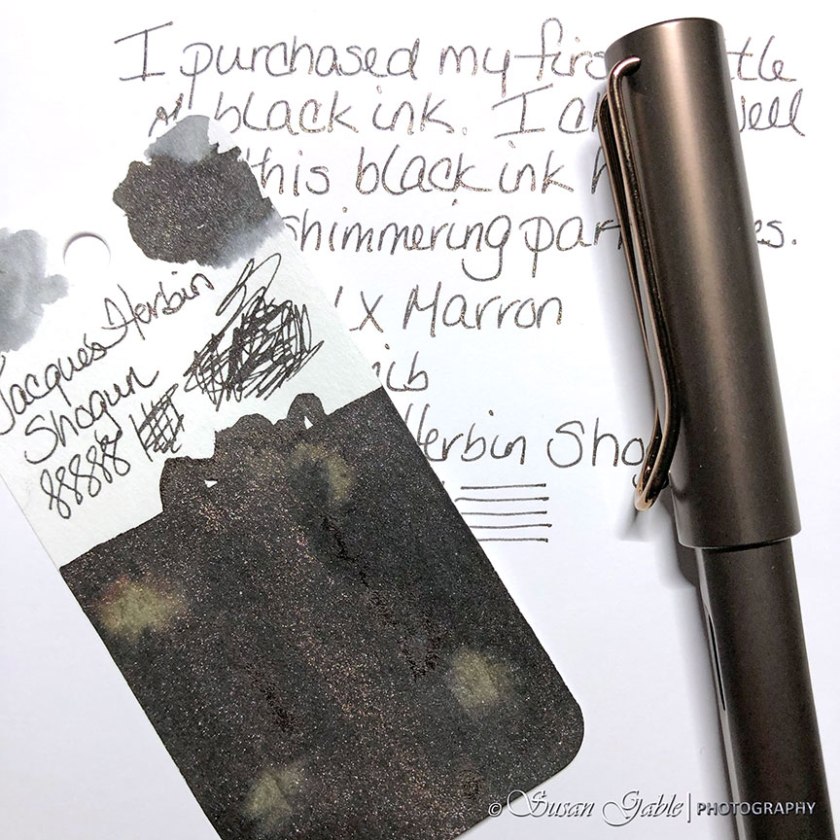 I purchased my firs ttle
black ink. I
this black ink
shimmering par es.
X Marron
nib
Herbin Sho
Jacques Herbin
Shogun
© Susan Gable | PHOTOGRAPHY